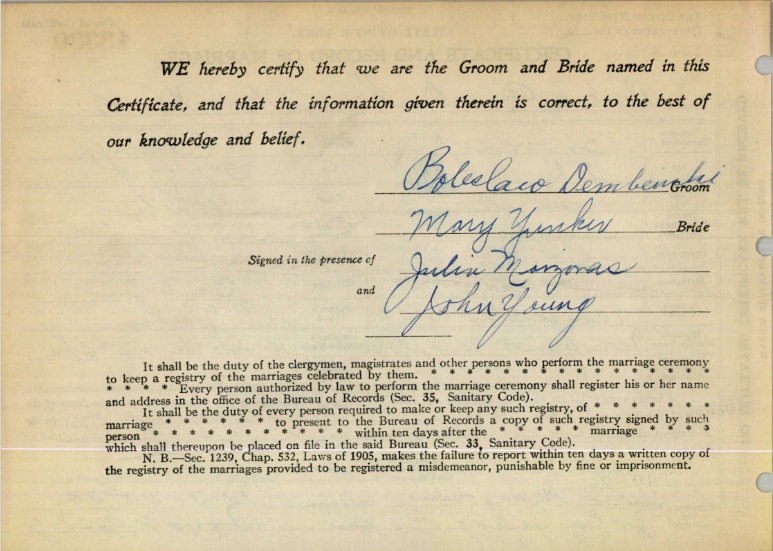 WE hereby certify that we are the Groom and Bride named in this
Certificate, and that the information given therein is correct, to the best of
our knowledge and belief.
Boleslaw Dembenski Groom
Mary Yunker Bride
Signed in the presence of Julia
and John Young
It shall be the duty of the clergymen, magistrates and other persons who perform the marriage ceremony
to keep a registry of the marriages celebrated by them. * * * * * * * * * * * * * *
* * * * Every person authorized by law to perform the marriage ceremony shall register his or her name
and address in the office of the Bureau of Records (Sec. 35, Sanitary Code).
It shall be the duty of every person required to make or keep any such registry, of * * * * * *
marriage * * * * * * * to present to the Bureau of Records a copy of such registry signed by such
person * * * * * * * * * * * within ten days after the * * * * * marriage * * * *
which shall thereupon be placed on file in the said Bureau (Sec. 33, Sanitary Code).
N. B.—Sec. 1239, Chap. 532, Laws of 1905, makes the failure to report within ten days a written copy of
the registry of the marriages provided to be registered a misdemeanor, punishable by fine or imprisonment.